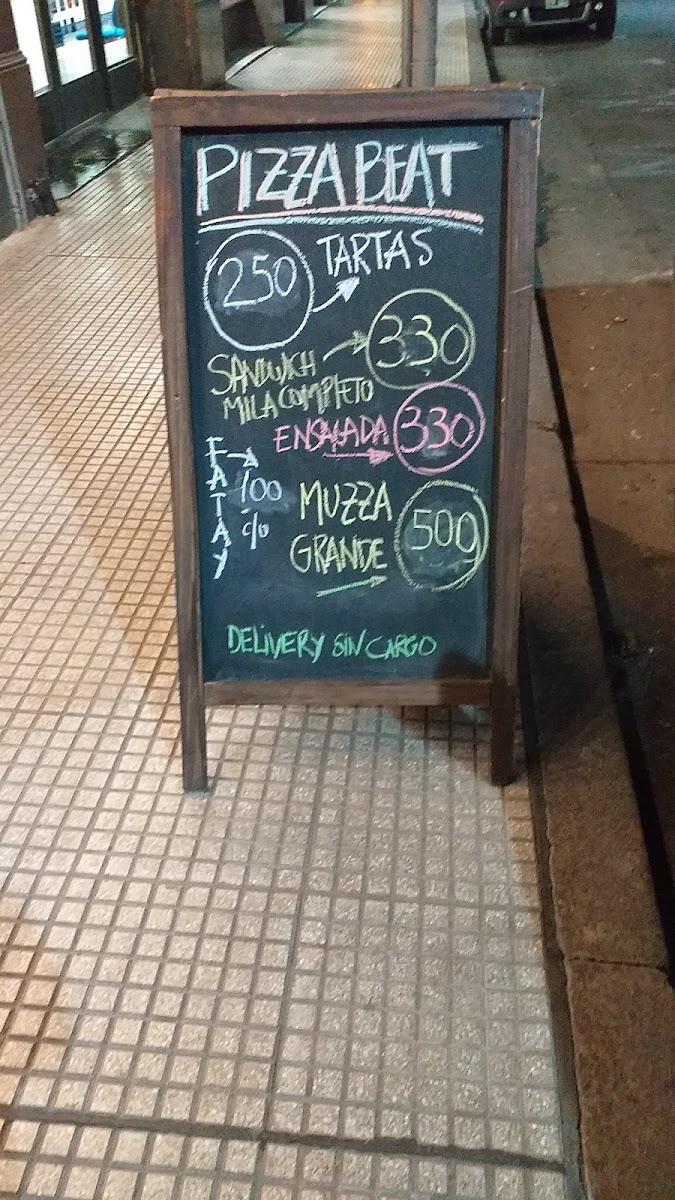 PIZZA BEAT
250 TARTAS
SANDWICH 330
MILA COMPLETO
ENSALADA 330
FATAY 100 c/o
MUZZA
GRANDE 500
DELIVERY SIN CARGO